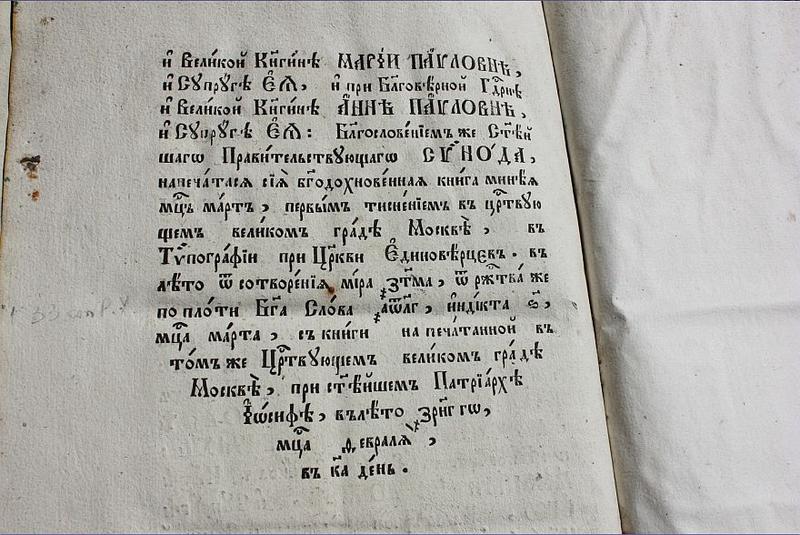 и҆ Вели́кой Кн҃ги́нѣ МАРІ́И ПА́ѴЛОВНѢ,
и҆ Сꙋпрꙋ́гѣ Е҆Ѧ̀, и҆ при Бл҃говѣ́рной Гдⷭ҇рнѣ
и҆ Вели́кой Кн҃ги́нѣ А҆́ННѢ ПА́ѴЛОВНѢ,
и҆ Сꙋпрꙋ́гѣ Е҆Ѧ̀: Бл҃гослове́нїемъ же Ст҃ѣ́й
шагѡ Прави́тельствꙋющагѡ СѴНО́ДА,
напеча́тасѧ сїѧ̀ бг҃одохнове́нная кни́га мине́ѧ
мцⷭ҇ъ ма́ртъ, пе́рвымъ тисне́нїемъ въ црⷭ҇твꙋю
щемъ вели́комъ гра́дѣ Москвѣ̀, въ
Тѷпогра́фїи при Цр҃кви Е҆диновѣ́рцевъ. въ
лѣ́то ѿ сотворе́нїѧ мі́ра ҂зт҃ма, ѿ ржⷭ҇тва́ же
по пло́ти Бг҃а Сло́ва ҂аѿл҃г, и҆нді́кта ѕ҃,
мцⷭ҇а ма́рта, съ кни́ги напеча́танной въ
то́мъ же Црⷭ҇твꙋющемъ вели́комъ гра́дѣ
Москвѣ̀, при ст҃ѣ́йшемъ Патрїа́рхѣ
І҆ѡ́сифѣ, въ лѣ́то ҂зрн҃г гѡ,
мцⷭ҇а феврала̀,
въ к҃а де́нь.